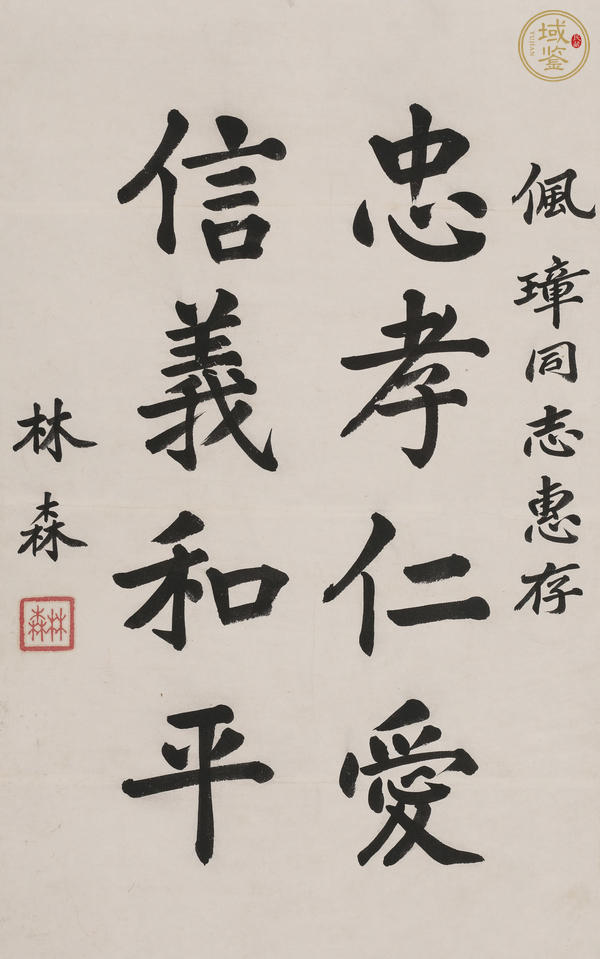 佩璋同志惠存
忠孝仁愛
信義和平
林森
林森
域鉴
YUJIAN